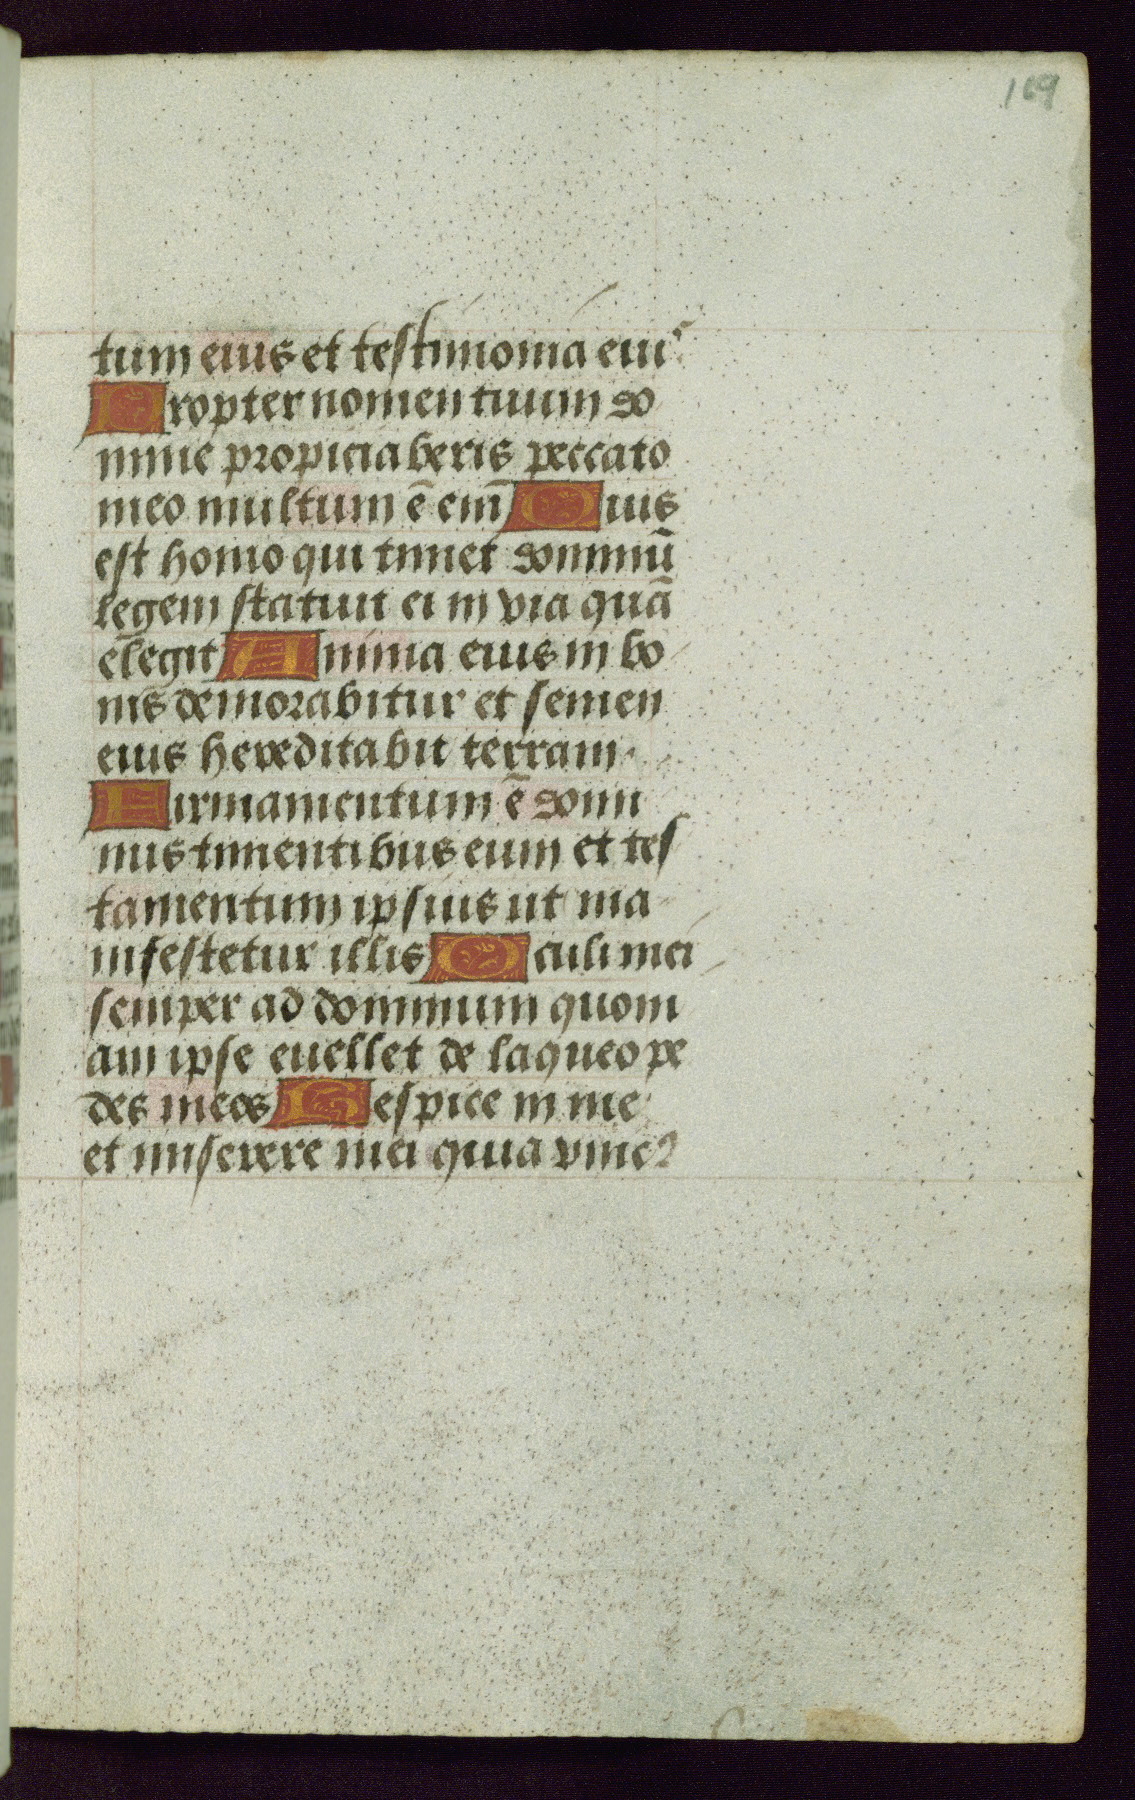 109
tum eius et testimonia eius
Propter nomen tuum do
mine propiciaberis peccato
meo multum ē eni̅ Quis
est homo qui timet dominū
legem statuit ei in via quā
elegit Anima eius in bo
nis demorabitur et semen
eius hereditabit terram.
Firmamentum ē domi
nus timentibus eum et tes
tamentum ipsius ut ma
nifestetur illis Oculi mei
semper ad dominum quoni
am ipse euellet de laqueo pe
des meos Respice in me
et miserere mei quia vnic9